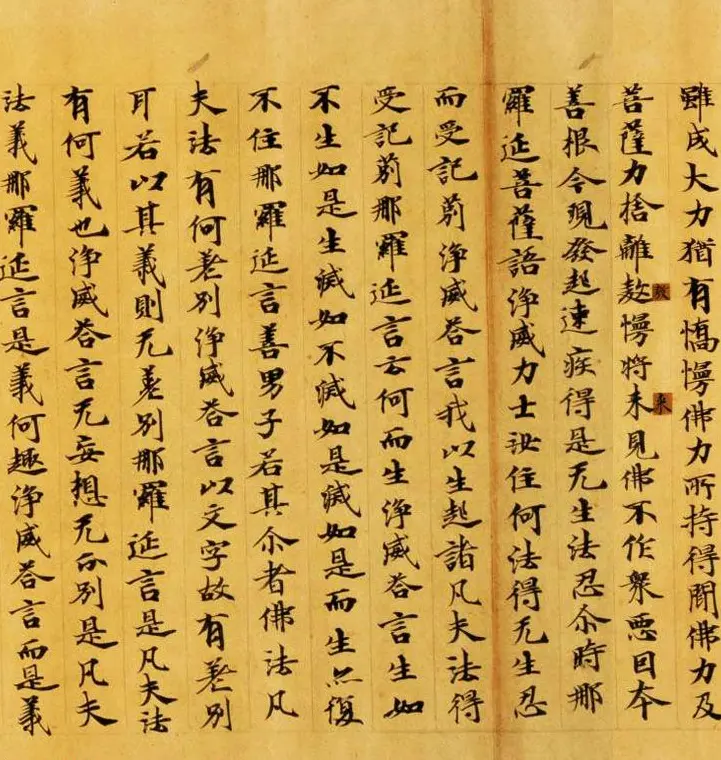 雖成大力猶有憍慢佛力所持得聞佛力及
菩薩力捨離敖慢將未見佛不作衆惡因本
敖
来
善根今現發起速疾得是无生法忍尒時那
羅延菩薩語淨威力士汝住何法得无生忍
而受記莂淨威荅言我以生起諸凡夫法得
受記莂那羅延言云何而生淨威荅言生如
不生如是生滅如不滅如是滅如是而生亦復
不住那羅延言善男子若其尒者佛法凡
夫法有何差別淨威荅言以文字故有差別
耳若以其義則无差別那羅延言是凡夫法
有何義也淨威荅言无妄想无分別是凡夫
法義那羅延言是義何趣淨威荅言而是義